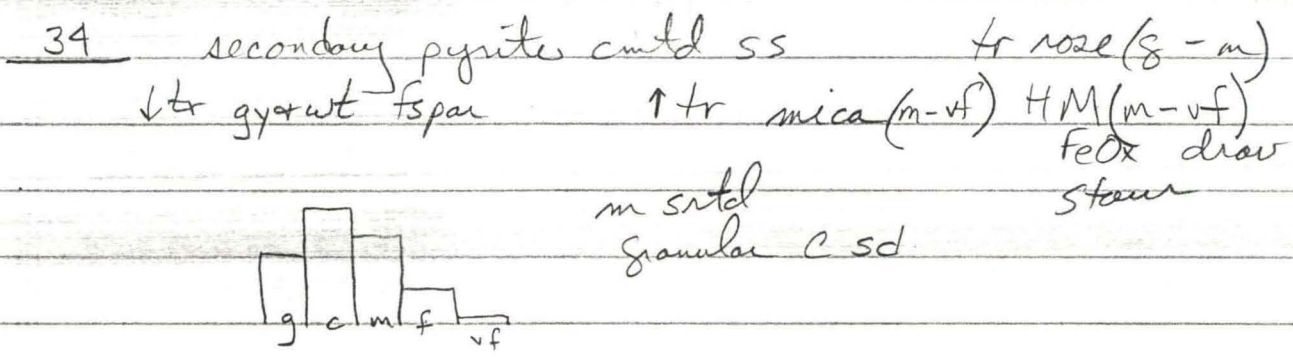 34 secondary pyrite cmtd ss tr rose (g-m)
↓tr gy+wt fspar ↑tr mica (m-vf) HM (m-vf)
FeOx drav
m srtd staur
granular c sd
g c m f vf